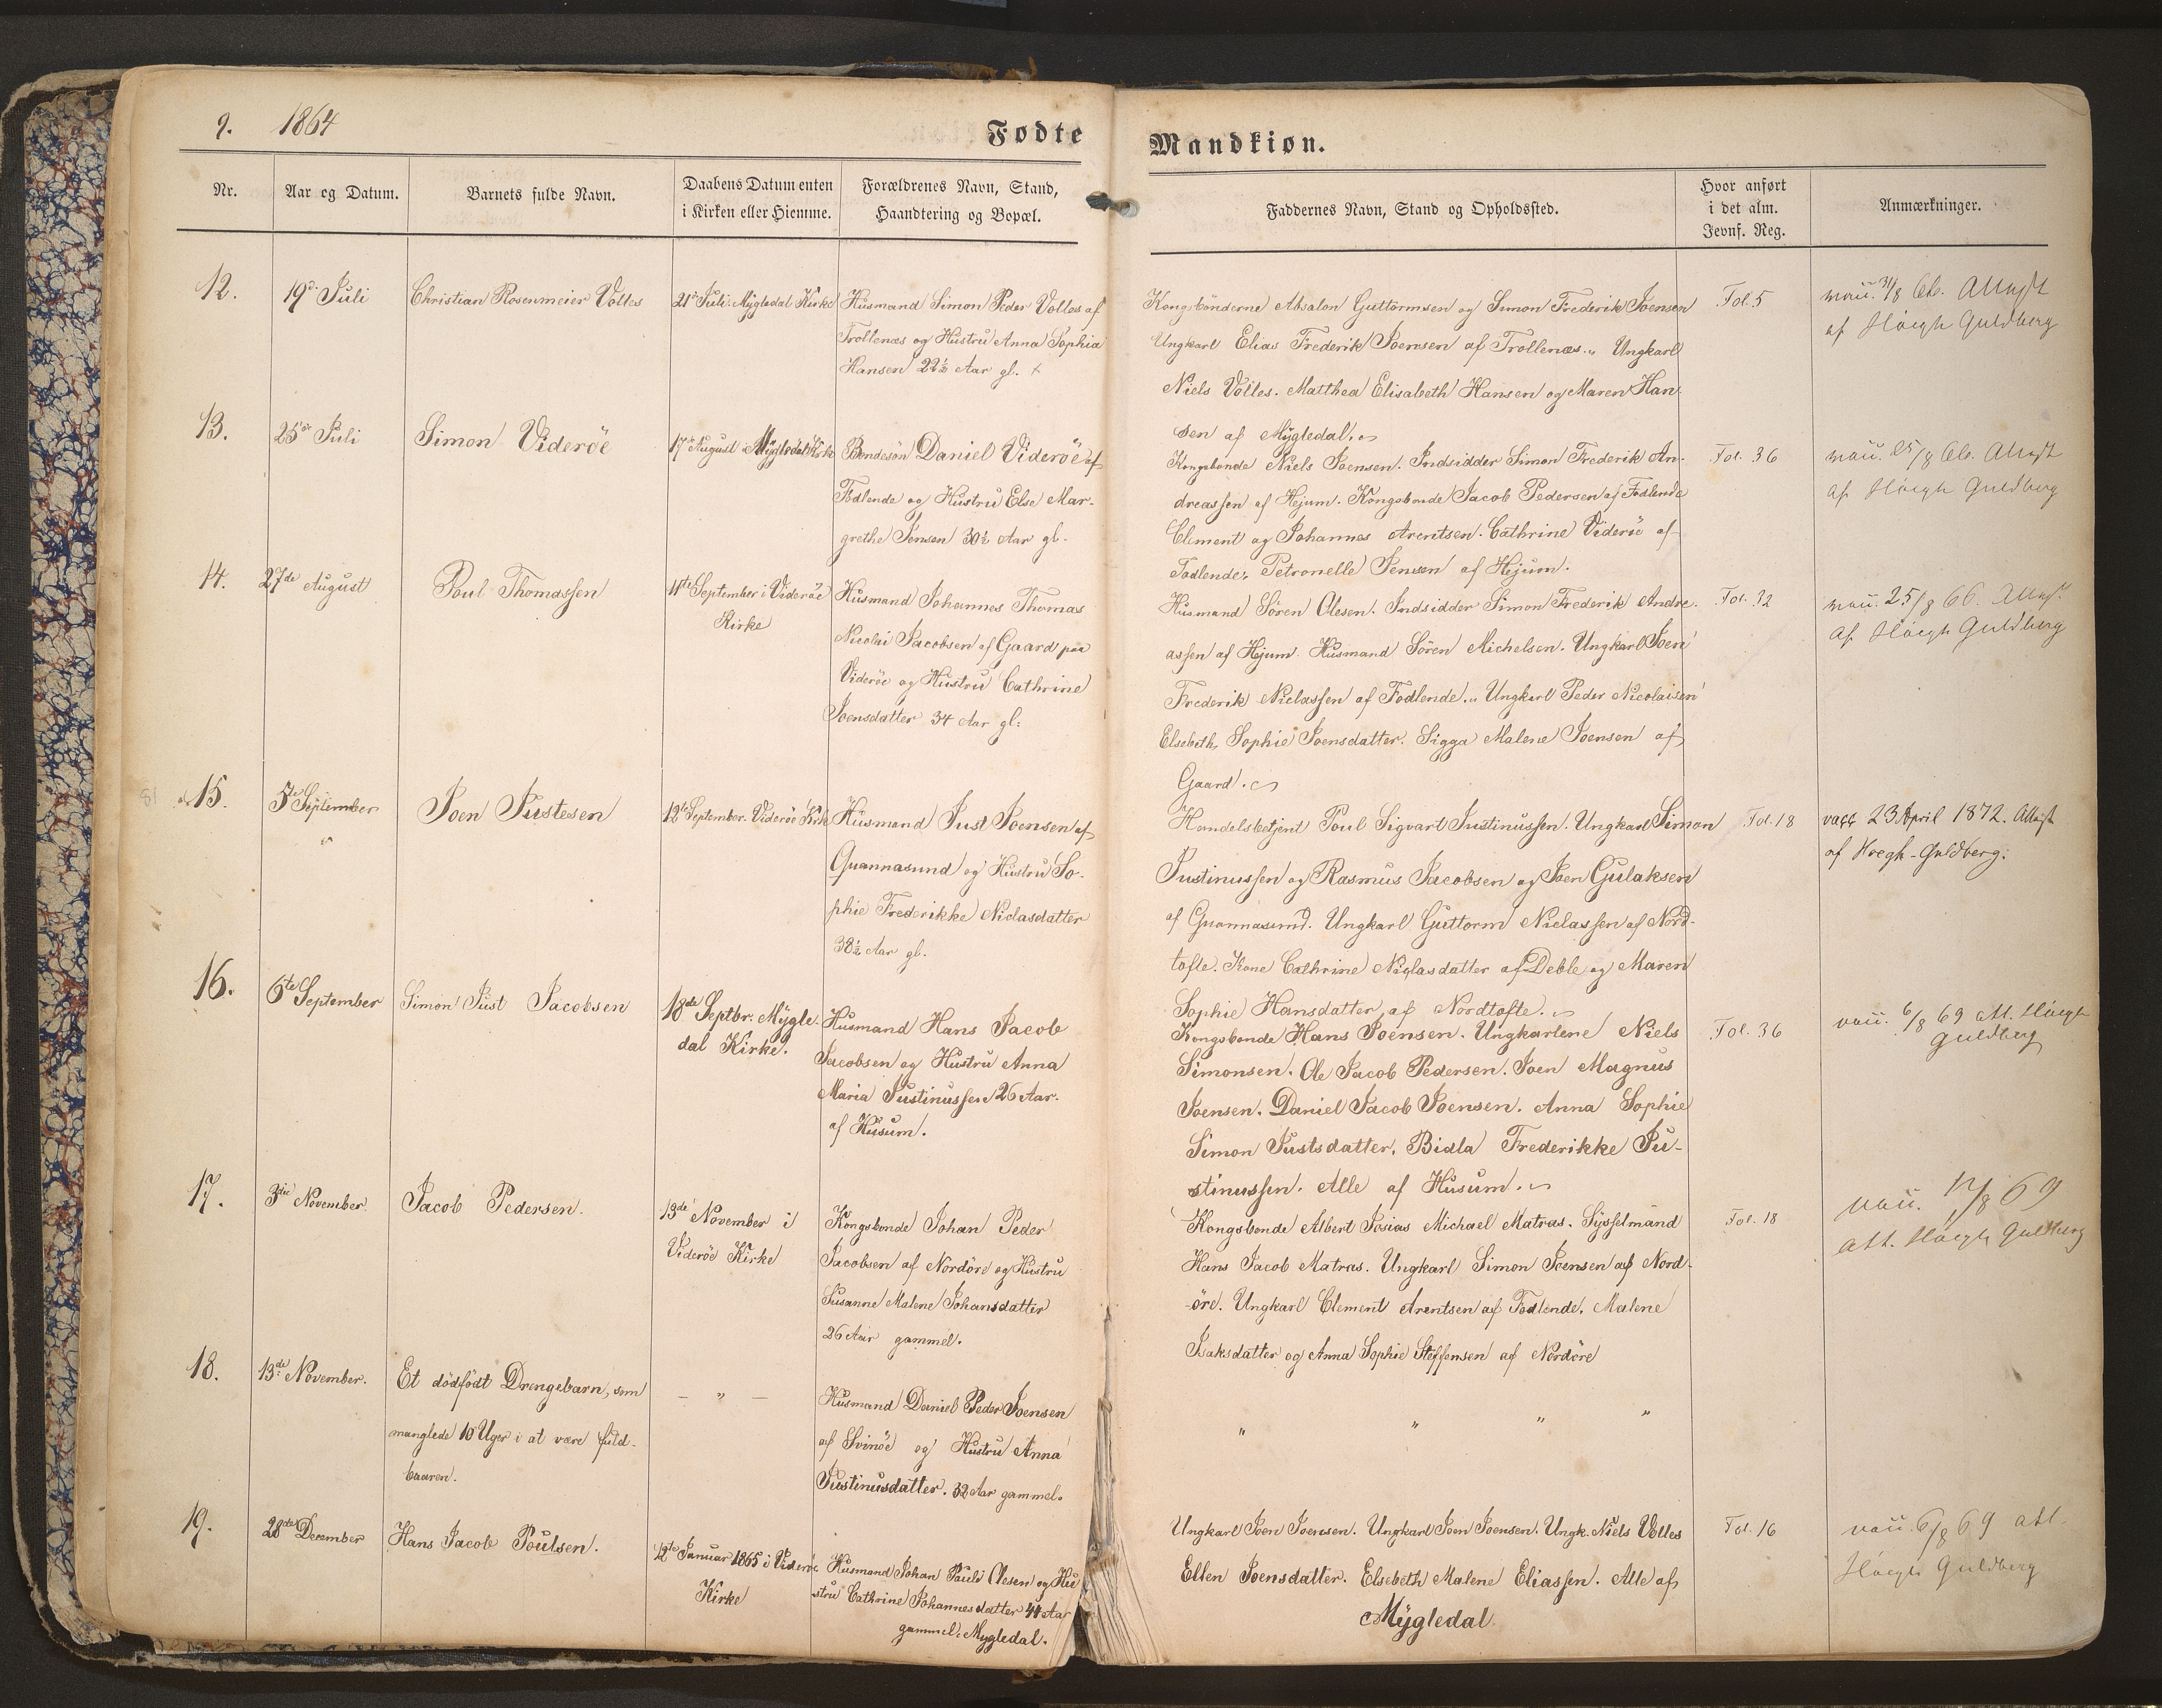 9. 1864
Fødte
Mandkiøn.
Nr.
Aar og Datum.
Barnets fulde Navn.
Daabens Datum enten
i Kirken eller Hiemme.
Forældrenes Navn, Stand,
Haandtering og Bopæl.
Faddernes Navn, Stand og Opholdssted.
Hvor anført
i det alm.
Jevnf. Reg.
Anmærkninger.
12.
19de Juli
Christian Rosenmeier Volles
21de Juli. Mÿgledal Kirke
Husmand Simon Peder Volles af
Trollenæs og Hustrú Anna Sophia
Hansen 22½ Aar gl. x
Kongsbönderne Absalon Guttormsen og Simon Frederik Joensen
Ungkarl Elias Frederik Joensen af Trollenæs. „ Ungkarl
Niels Volles. Matthea Elisabeth Hansen og Maren Han-
sen af Mÿgledal.
Fol. 5
31/8 66. Attest
af Höegh Guldberg
13.
25de Juli
Simon Videröe
17de August i Mÿgledal Kirke
Bondesön Daniel Videröe af
Fodlende og Hustrú Else Mar-
grethe Jensen 30½ Aar gl.
Kongsbonde Niels Joensen. Indsidder Simon Frederik An-
dreassen af Hejum. Kongsbonde Jacob Pedersen af Fodlende
Clement og Johannes Arentsen. Cathrine Videröe af
Fodlende. Petronelle Jensen af Hejum.
Fol. 36
25/8 66. Attest
af Höegh Guldberg
14.
27de August
Poul Thomassen
11te September i Videröe
Kirke
Husmand Johannes Thomas
Nicolai Jacobsen af Gaard paa
Videröe og Hustrú Cathrine
Joensdatter 34 Aar gl:
Husmand Sören Olesen. Indsidder Simon Frederik Andre-
assen af Hejum. Husmand Sören Michelsen. Ungkarl Joen
Frederik Niclassen af Fodlende. „ Ungkarl Peder Nicolaisen
Elsebeth Sophie Joensdatter. Sigga Malene Joensen af
Gaard.
Fol. 32
25/8 66. Attest
af Höegh Guldberg
15.
5te September
„
Joen Justesen
12te September. Videröe Kirke
Husmand Just Joensen af
Quannasund og Hustrú So-
phie Frederikke Niclasdatter
38½ Aar gl.
Handelsbetjent Poul Sigvart Justinussen. Ungkarl Simon
Justinussen og Rasmus Jacobsen og Joen Gulaksen
af Quannasund. Ungkarl Guttorm Niclassen af Nord-
tofte. Kone Cathrine Niclasdatter af Deble og Maren
Sophie Hansdatter af Nordtofte.
Fol. 18
vacc 23 April 1872. Attest
af Höegh-Guldberg.
16.
6te September
Simon Just Jacobsen
18de Septbr. Mÿgle-
dal Kirke.
Husmand Hans Jacob
Jacobsen og Hustru Anna
Maria Justinussen 26 Aar.
af Húsum.
Kongsbonde Hans Joensen. Ungkarlene Niels
Simonsen. Ole Jacob Pedersen. Joen Magnus
Joensen. Daniel Jacob Joensen. Anna Sophie
Simon Justsdatter. Bidla Frederikke Ju-
stinussen. Alle af Húsum.
Fol. 36
6/8 69 Att. Höegh
Guldberg
17.
3die November
Jacob Pedersen.
13de November i
Videröe Kirke
Kongsbonde Johan Peder
Jacobsen af Nordöre og Hustru
Susanne Malene Johansdatter
26 Aar gammel.
Kongsbonde Albert Josias Michael Matras. Sysselmand
Hans Jacob Matras. Ungkarl Simon Joensen af Nord-
öre. Ungkarl Clement Arentsen af Fodlende. Malene
Isaksdatter og Anna Sophie Steffensen af Nordöre
Fol. 18
/8 69
Att. Höegh Guldberg
18.
13de November.
Et dödfödt Drengebarn, som
manglede 10 Uger i at være fuld-
baaren.
– „ –
Husmand Daniel Peder Joensen
af Svinöe og Hustru Anna
Justinusdatter. 32 Aar gammel.
„ „ „ „
19.
28de December
Hans Jacob Poulsen.
12te Januar 1865 i Viderøe
Kirke
Husmand Johan Pauli Olesen og Hu-
stru Cathrine Johannesdatter 44 Aar
gammel. Mygledal.
Ungkarl Joen Joensen. Ungkarl Joen Joensen. Ungk. Niels Volles
Ellen Joensdatter. Elsebeth Malene Eliassen. Alle af
Mÿgledal
Fol. 16
6/8 69 att.
Höegh Guldberg